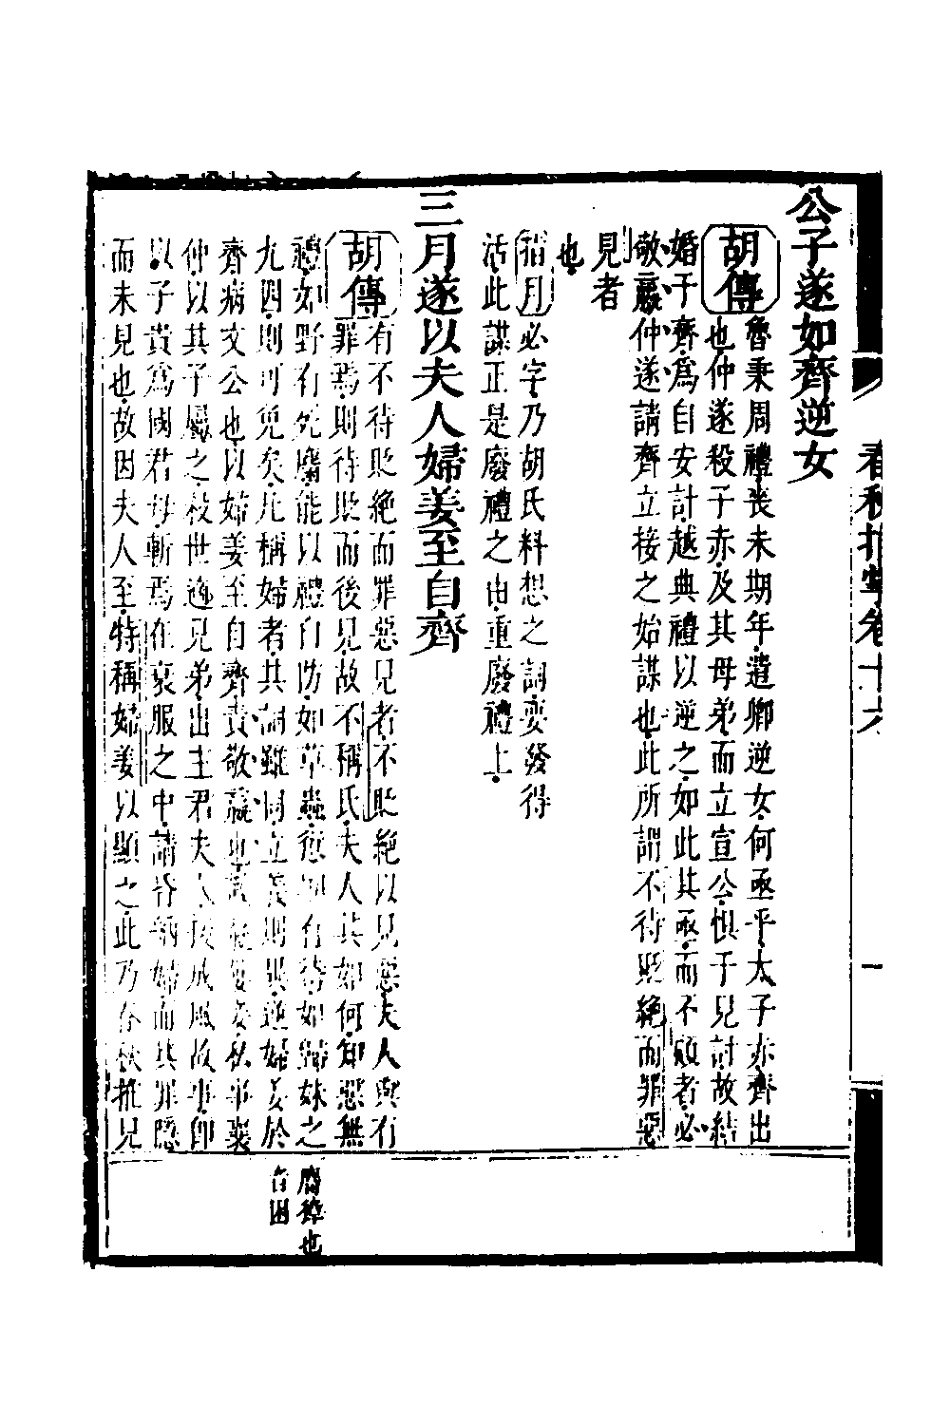 公子遂如齊逆女
胡傳
魯秉周禮喪未期年遣卿逆女何亟乎太子赤齊出
也仲遂殺子赤及其母弟而立宣公惧于見討故結
婚于齊爲自安計越典禮以逆之如此其亟而不顧者必
敬嬴仲遂請齊立接之始謀也此所謂不待貶絕而罪惡
見者
也
指月必字乃胡氏料想之詞要發得
活此謀正是廢禮之由重廢禮上
三月遂以夫人婦姜至自齊
胡傳
有不待貶絕而罪惡見者不貶絕以見惡夫人與有
罪焉則待貶而後見故不稱氏夫人其如何知惡無
禮如野有死麕能以禮自防如草蟲 有待如歸妹之
九四則可免矣凡稱婦者其詞雖同立義則異逆婦姜於
齊病文公也以婦姜至自齊責敬嬴也 妾私事襄
仲以其子屬之殺世適兄弟出主君夫人援成風故事卽
以子貴爲國君母斬焉在衰服之中請昏納婦而其罪隱
而未見也故因夫人至特稱婦姜以顯之此乃春秋推見
麕獐也
音困
春秋指掌卷十六
一